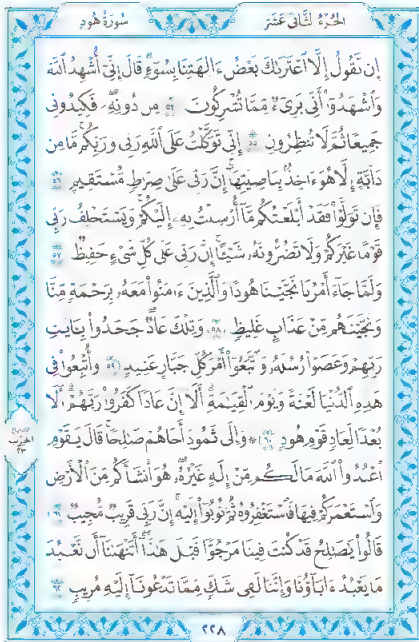 الجزء الثاني عشر
سورة هود
إِن نَّقُولُ إِلَّا ٱعْتَرَىٰكَ بَعْضُ ءَالِهَتِنَا بِسُوٓءٍ ۗ قَالَ إِنِّىٓ أُشْهِدُ ٱللَّهَ
وَٱشْهَدُوٓا۟ أَنِّى بَرِىٓءٌ مِّمَّا تُشْرِكُونَ ٥٤ مِن دُونِهِۦ ۖ فَكِيدُونِى
جَمِيعًا ثُمَّ لَا تُنظِرُونِ ٥٥ إِنِّى تَوَكَّلْتُ عَلَى ٱللَّهِ رَبِّى وَرَبِّكُم ۚ مَّا مِن
دَآبَّةٍ إِلَّا هُوَ ءَاخِذٌۢ بِنَاصِيَتِهَآ ۚ إِنَّ رَبِّى عَلَىٰ صِرَٰطٍ مُّسْتَقِيمٍ ٥٦
فَإِن تَوَلَّوْا۟ فَقَدْ أَبْلَغْتُكُم مَّآ أُرْسِلْتُ بِهِۦٓ إِلَيْكُمْ ۚ وَيَسْتَخْلِفُ رَبِّى
قَوْمًا غَيْرَكُمْ وَلَا تَضُرُّونَهُۥ شَيْـًٔا ۚ إِنَّ رَبِّى عَلَىٰ كُلِّ شَىْءٍ حَفِيظٌ ٥٧
وَلَمَّا جَآءَ أَمْرُنَا نَجَّيْنَا هُودًا وَٱلَّذِينَ ءَامَنُوا۟ مَعَهُۥ بِرَحْمَةٍ مِّنَّا
وَنَجَّيْنَٰهُم مِّنْ عَذَابٍ غَلِيظٍ ٥٨ وَتِلْكَ عَادٌ ۖ جَحَدُوا۟ بِـَٔايَٰتِ
رَبِّهِمْ وَعَصَوْا۟ رُسُلَهُۥ وَٱتَّبَعُوٓا۟ أَمْرَ كُلِّ جَبَّارٍ عَنِيدٍ ٥٩ وَأُتْبِعُوا۟ فِى
هَٰذِهِ ٱلدُّنْيَا لَعْنَةً وَيَوْمَ ٱلْقِيَٰمَةِ ۗ أَلَآ إِنَّ عَادًا كَفَرُوا۟ رَبَّهُمْ ۗ أَلَا
بُعْدًا لِّعَادٍ قَوْمِ هُودٍ ٦٠ ۞ وَإِلَىٰ ثَمُودَ أَخَاهُمْ صَٰلِحًا ۚ قَالَ يَٰقَوْمِ
الحزب
٢٣
ٱعْبُدُوا۟ ٱللَّهَ مَا لَكُم مِّنْ إِلَٰهٍ غَيْرُهُۥ ۖ هُوَ أَنشَأَكُم مِّنَ ٱلْأَرْضِ
وَٱسْتَعْمَرَكُمْ فِيهَا فَٱسْتَغْفِرُوهُ ثُمَّ تُوبُوٓا۟ إِلَيْهِ ۚ إِنَّ رَبِّى قَرِيبٌ مُّجِيبٌ ٦١
قَالُوا۟ يَٰصَٰلِحُ قَدْ كُنتَ فِينَا مَرْجُوًّا قَبْلَ هَٰذَآ ۖ أَتَنْهَىٰنَآ أَن نَّعْبُدَ
مَا يَعْبُدُ ءَابَآؤُنَا وَإِنَّنَا لَفِى شَكٍّ مِّمَّا تَدْعُونَآ إِلَيْهِ مُرِيبٍ ٦٢
٢٢٨